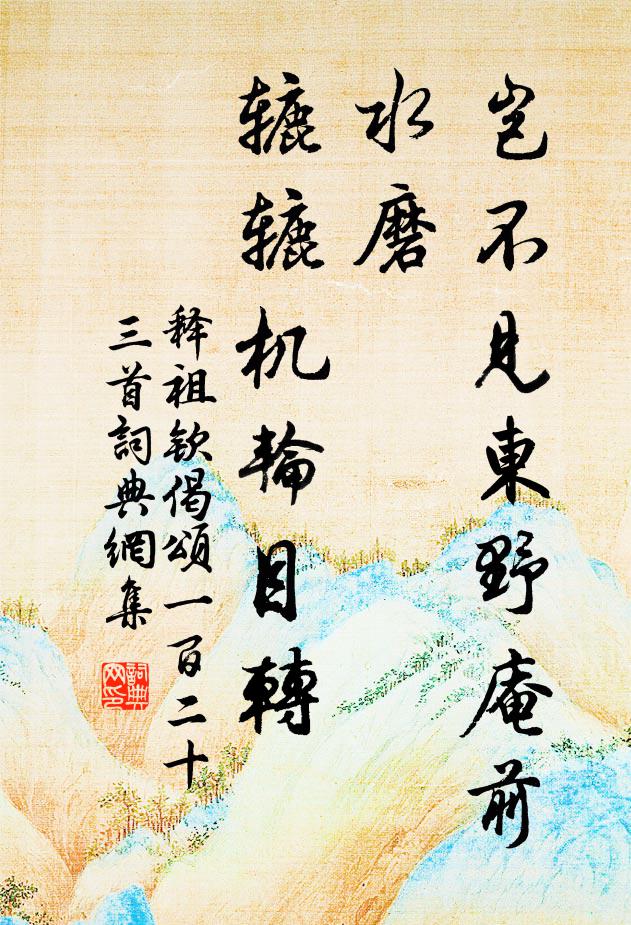 岂不見東野庵前
水磨
辘辘机輪目轉
释祖欽偈頌一百二十
三首詞典網集
詞典
网印